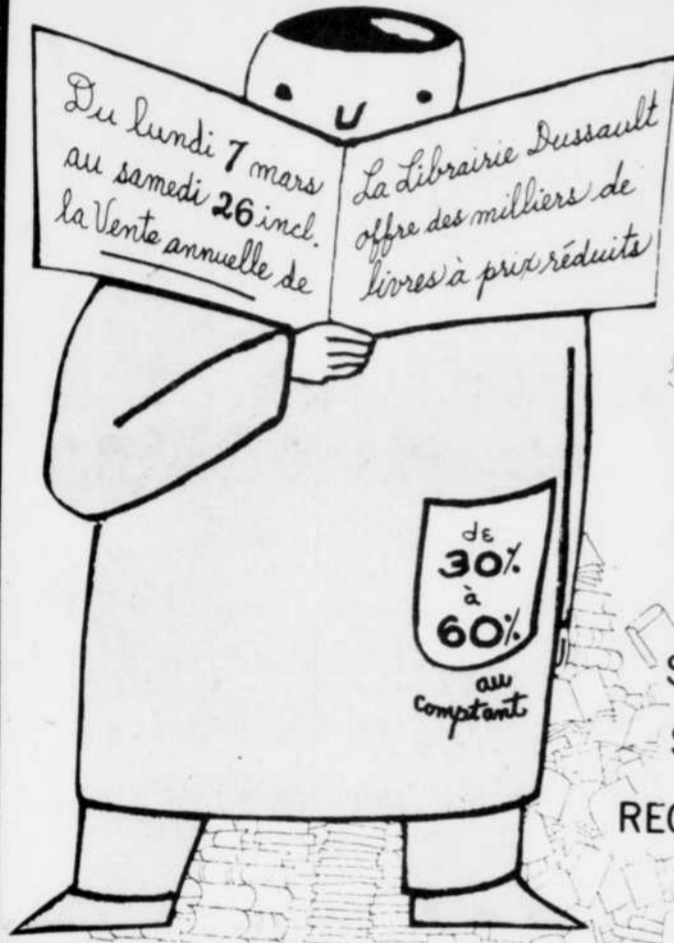 Du lundi 7 mars
au samedi 26 incl.
la Vente annuelle de
La Librairie Dussault
offre des milliers de
livres à prix réduits
de
30%
à
60%
au
comptant
S
S
REC